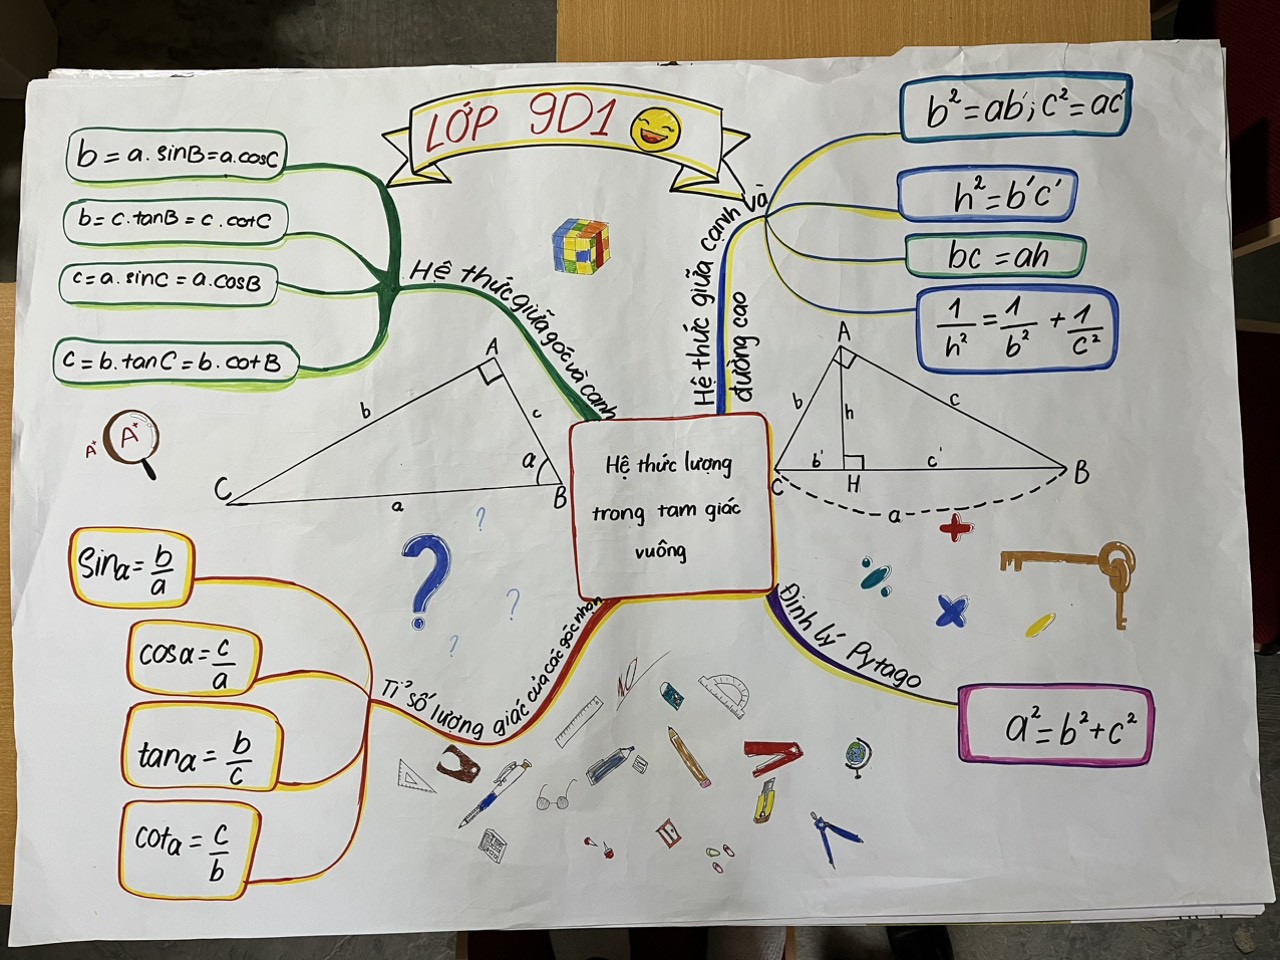 LỚP 9D1
b = a.sinB = a.cosC
b = c.tanB = c.cotC
c = a.sinC = a.cosB
c = b.tanC = b.cotB
Hệ thức giữa góc và cạnh
Hệ thức giữa cạnh và
đường cao
b² = ab'; c² = ac'
h² = b'c'
bc = ah
1/h² = 1/b² + 1/c²
A
b
c
α
C
a
B
A
b
h
c
b'
c'
C
H
B
a
A⁺
A⁺
Hệ thức lượng
trong tam giác
vuông
?
?
?
?
Sinα = b/a
cosα = c/a
tanα = b/c
cotα = c/b
Tỉ số lượng giác của các góc nhọn
Định lý Pytago
a² = b² + c²
10